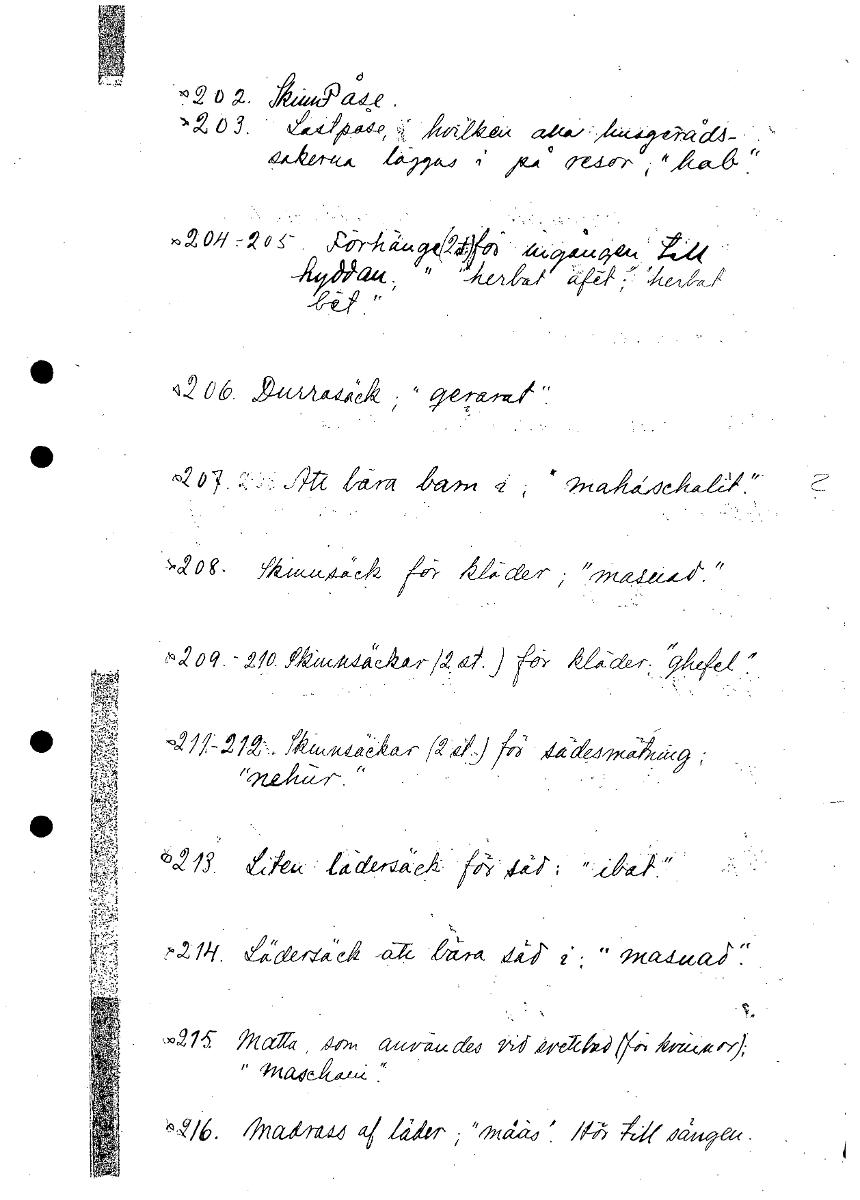 202. SkinnPåse.
203. Lastpåse, i hvilken alla husgeråds-
sakerna läggas i på resor; "hab".
204-205. Förhänge (2 st.) för ingången till
hyddan; "herbat afet; "herbat
bët."
206. Durrasäck; "gerarat".
207. Att bära barn i; "mahaschalit." 2
208. Skinnsäck för kläder; "masnad."
209.-210. Skinnsäckar (2 st.) för kläder; "ghefel".
211-212. Skinnsäckar (2 st.) för sädesmätning;
"nehür."
213. Liten lädersäck för säd; "ibat."
214. Lädersäck att bära säd i; "masnad".
215. Matta, som användes vid svettbad (för kvinnor);
216. Madrass af läder; "määs". Hör till sängen.